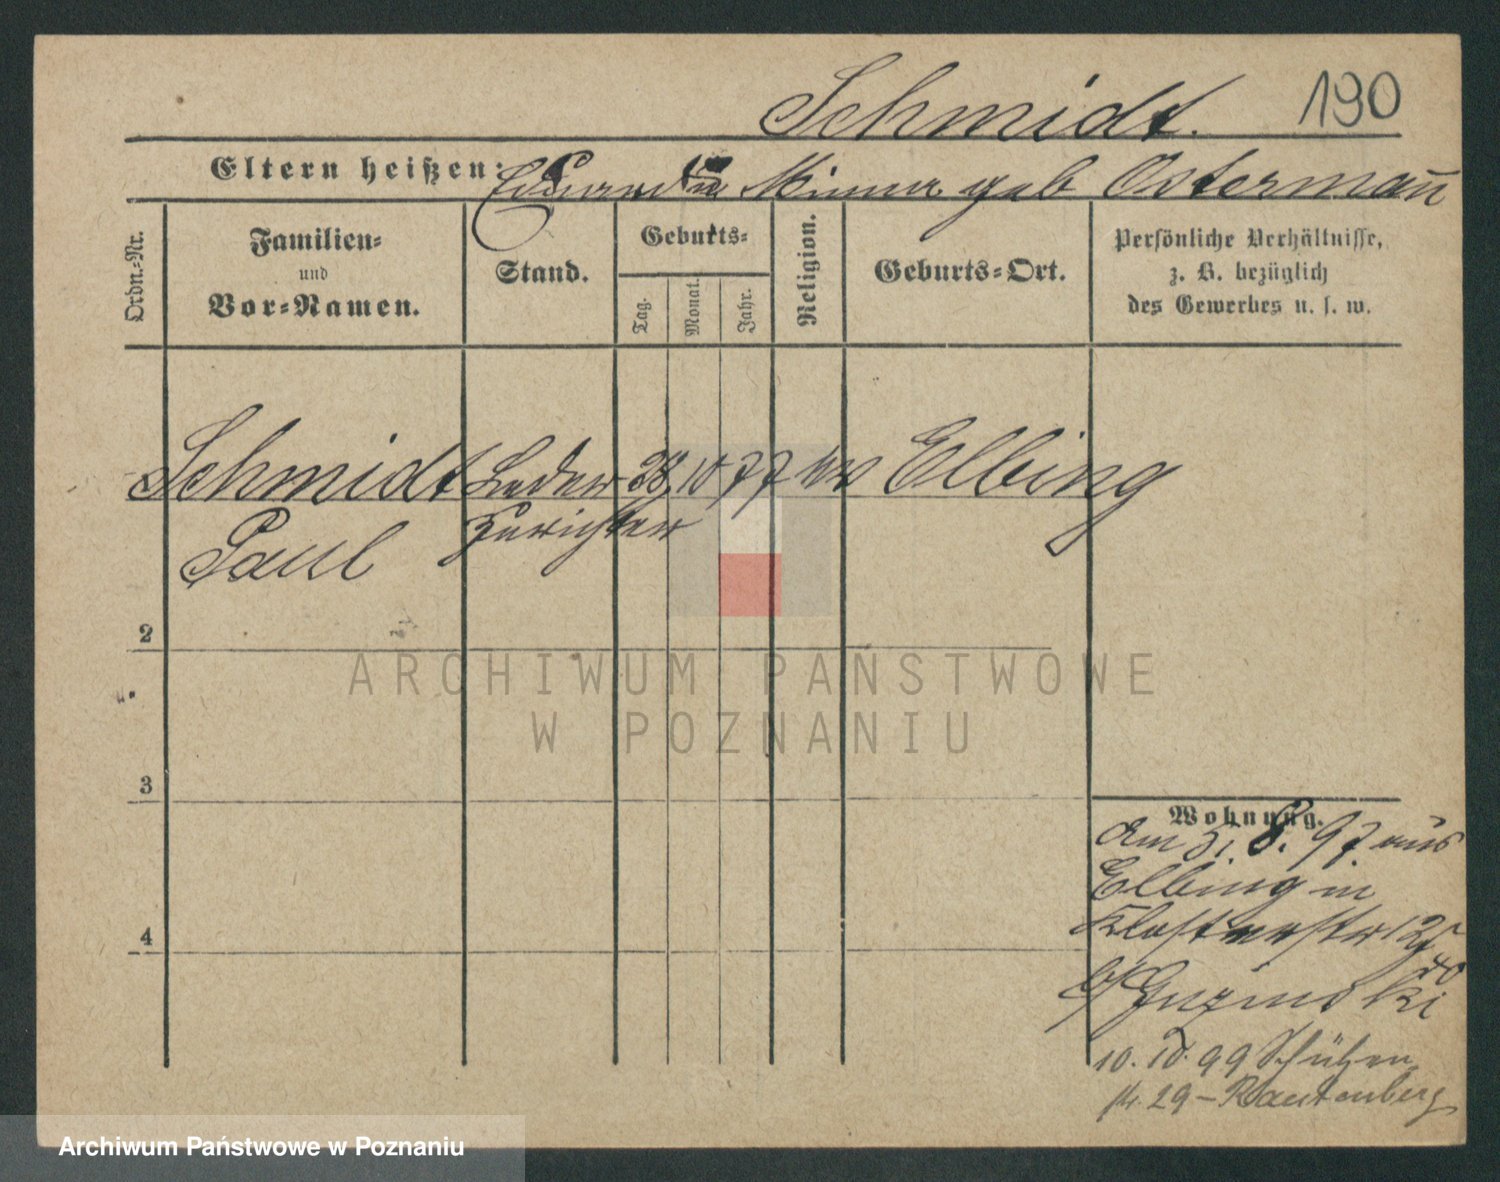 Schmidt. 190
Eltern heißen: Eduard u Minna geb Ostermañ
Ordn.-Nr.
Familien-
und
Vor-Namen.
Stand.
Geburts-
Tag.
Monat.
Jahr.
Religion.
Geburts-Ort.
Persönliche Verhältnisse,
z. B. bezüglich
des Gewerbes u. s. w.
Schmidt Leder 28 10 77 ev Elbing
Paul Zurichter
2
3
4
Wohnung.
am 31. 8. 97. aus
Elbing in
Klosterstr
b/
10. 10. 99 Schützen
str. 29 – Rautenberg
ARCHIWUM PAŃSTWOWE
W POZNANIU
Archiwum Państwowe w Poznaniu